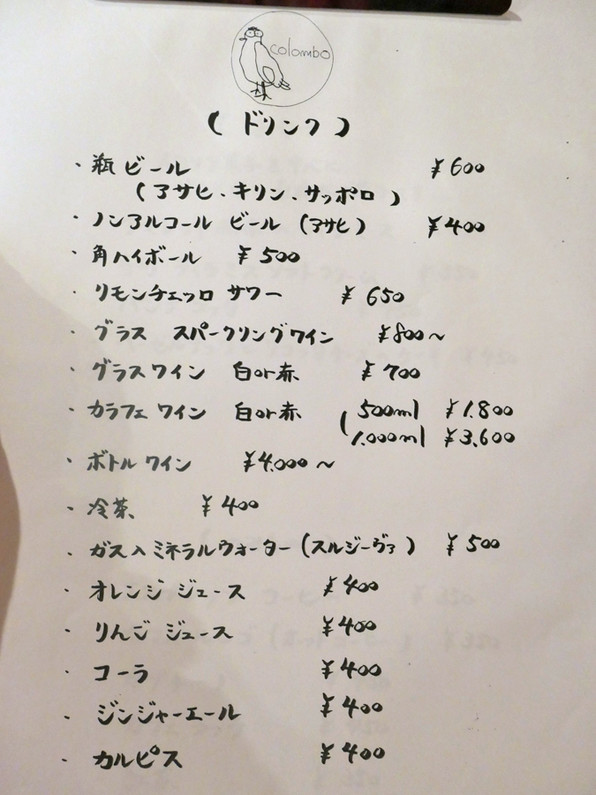 colombo
(ドリンク)
・瓶ビール ¥600
(アサヒ、キリン、サッポロ)
・ノンアルコール ビール (アサヒ) ¥400
・角ハイボール ¥500
・リモンチェッロ サワー ¥650
・グラス スパークリングワイン ¥800〜
・グラスワイン 白or赤 ¥700
・カラフェ ワイン 白or赤 ( 500ml ¥1.800
1.000ml ¥3,600
・ボトルワイン ¥4.000〜
・冷茶 ¥400
・ガス入ミネラルウォーター(スルジーヴァ) ¥500
・オレンジ ジュース ¥400
・りんご ジュース ¥400
・コーラ ¥400
・ジンジャーエール ¥400
・カルピス ¥400